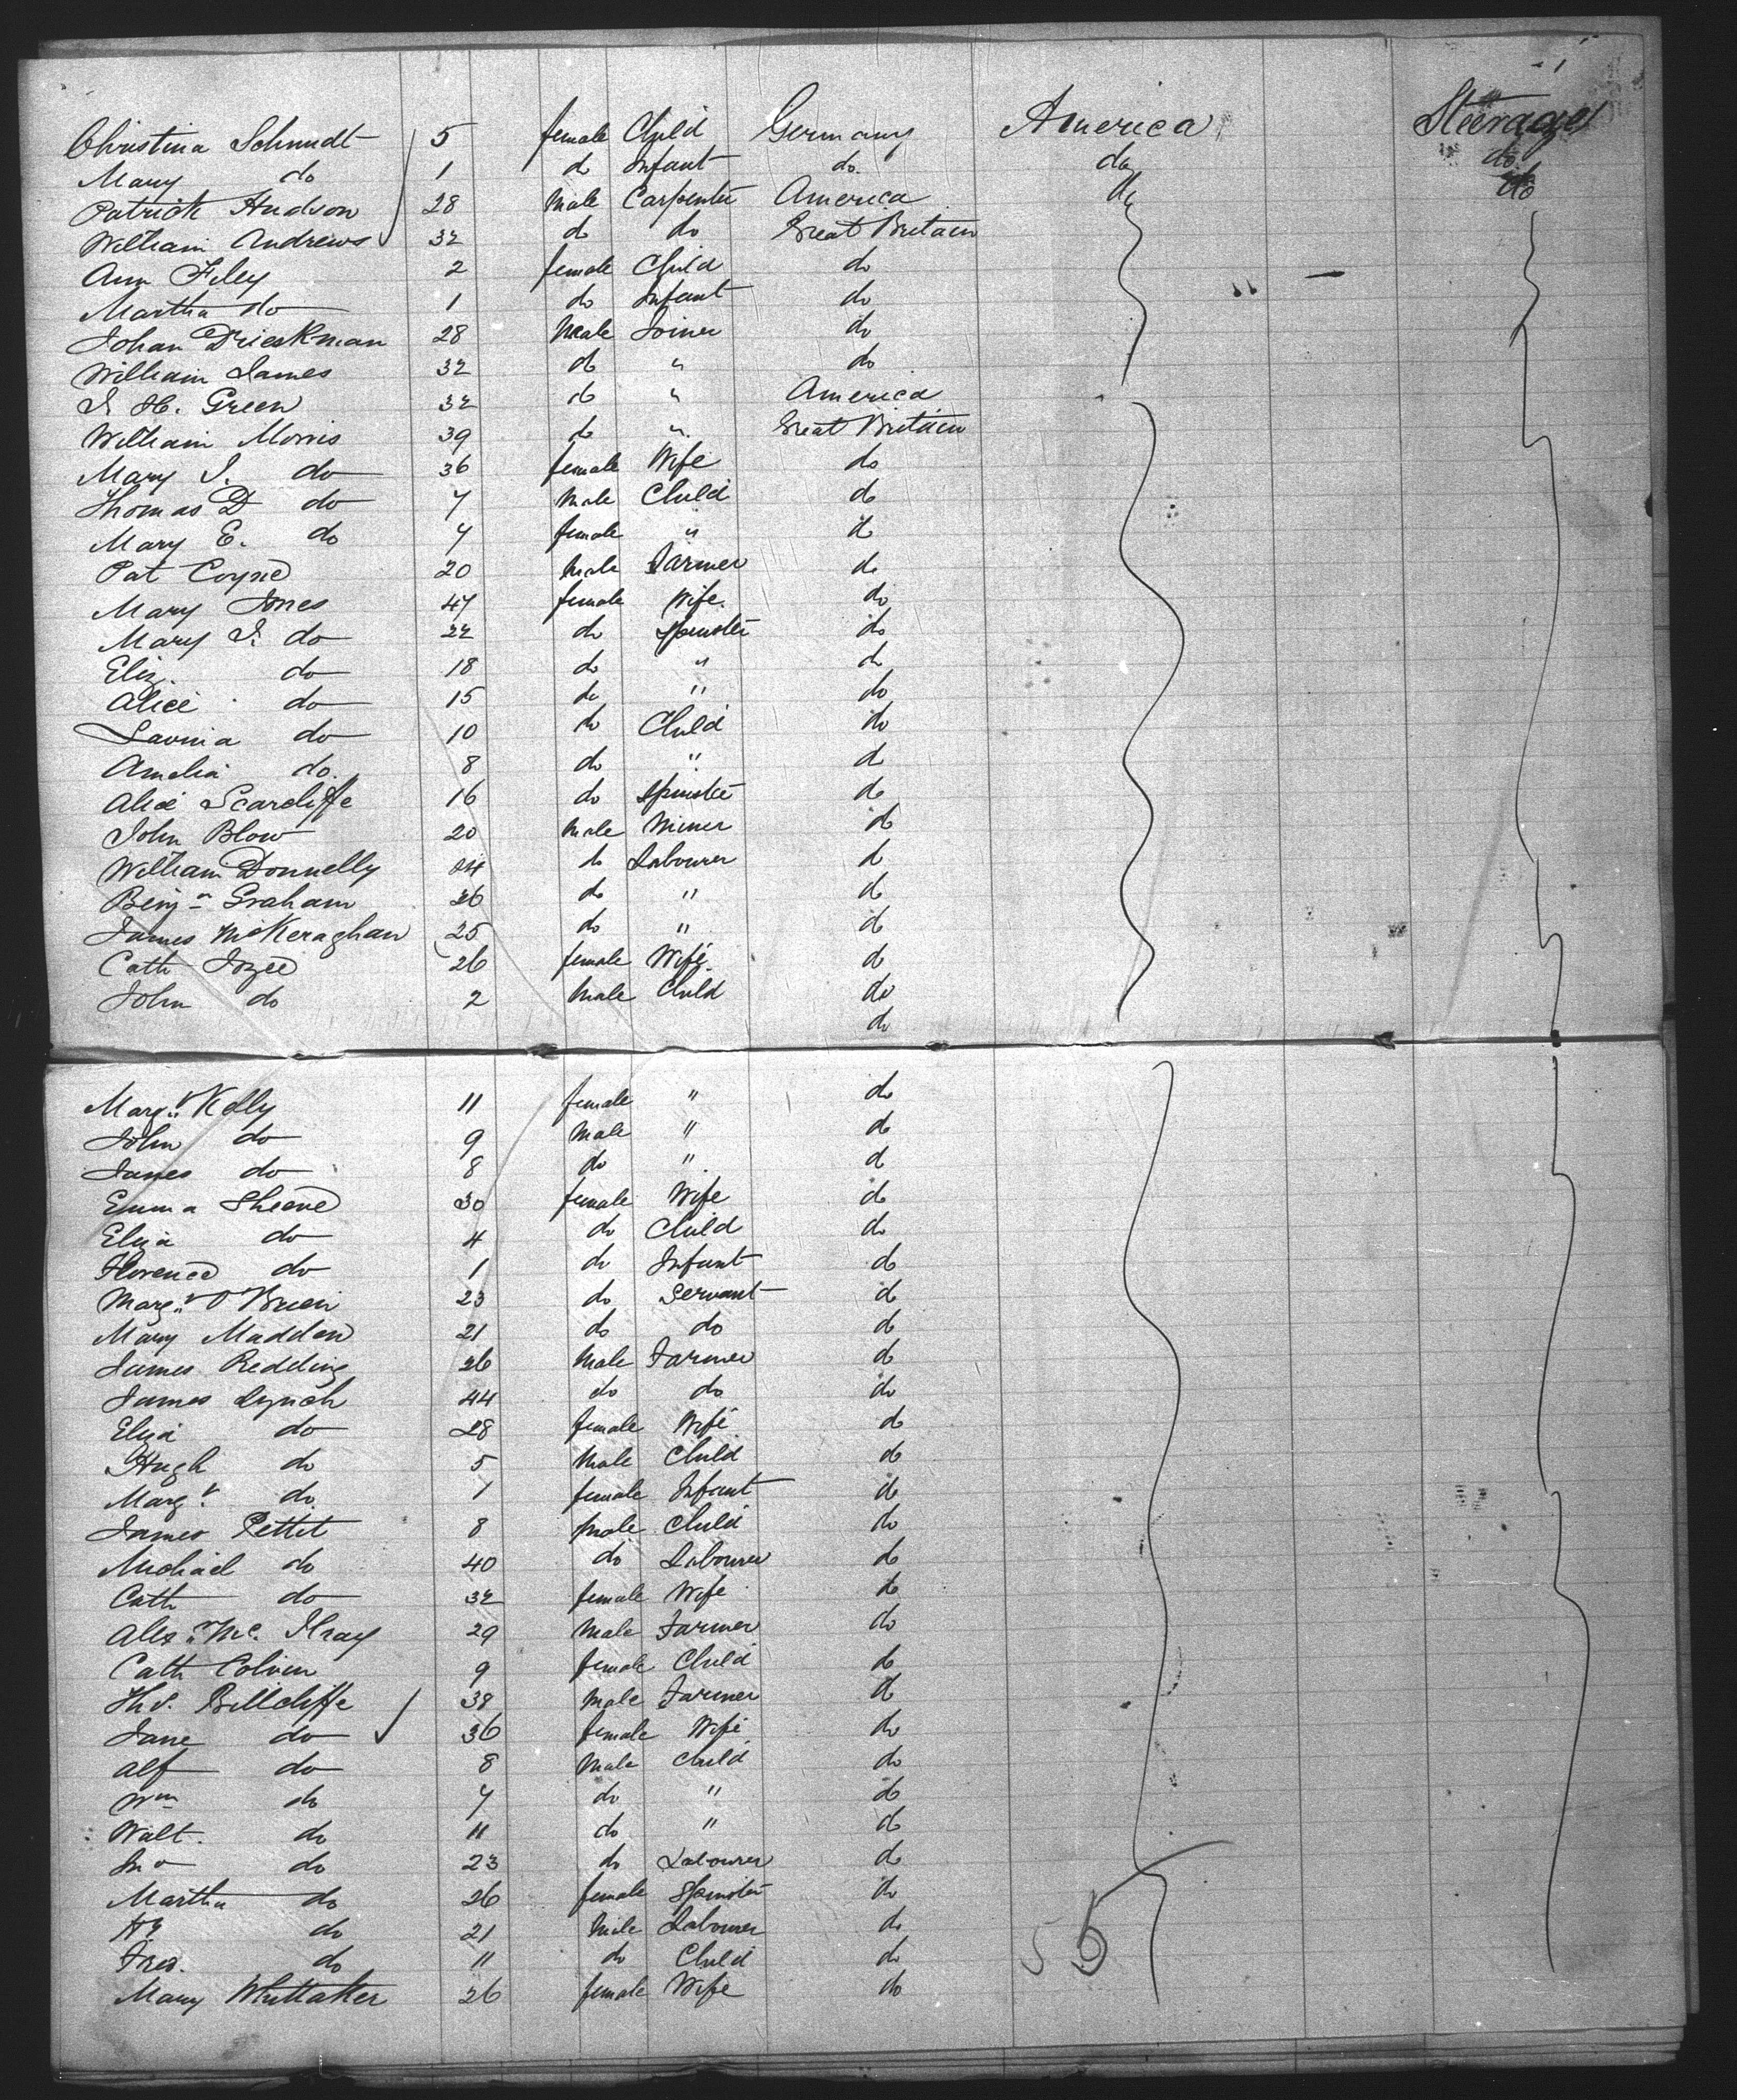 Christina Schmidt 5 female Child Germany America Steerage
Mary do 1 do Infant do do do
Patrick Hudson 28 Male Carpenter America do do
William Andrews 32 do do Great Britain
Ann Filey 2 female Child do
Martha do 1 do Infant do
Johan Drieskman 28 Male Joiner do
William James 32 do " do
J. H. Green 32 do " America
William Morris 39 do " Great Britain
Mary J. do 36 female Wife do
Thomas D do 7 Male Child do
Mary E. do 4 female " do
Pat Coyne 20 Male Farmer do
Mary Jones 47 female Wife. do
Mary J. do 22 do Spinster do
Eliz. do 18 do " do
Alice do 15 do " do
Lavinia do 10 do Child do
Amelia do. 8 do " do
Alice Scarcliffe 16 do Spinster do
John Blow 20 Male Miner do
William Donnelly 24 do Labourer do
Benjn Graham 26 do " do
James McKeraghan 25 do " do
Cath 26 female Wife. do
John do 2 Male Child do
do
Margt Kelly 11 female " do
John do 9 Male " do
James do 8 do " do
Emma Sheene 30 female Wife do
Eliza do 4 do Child do
Florence do 1 do Infant do
Margt O'Brien 23 do Servant do
Mary Madden 21 do do do
James Redding 26 Male Farmer do
James Lynch 44 do do do
Eliza do 28 female Wife do
Hugh do 5 Male Child do
Margt do. 1 female Infant do
James Pettit 8 Male Child do
Michael do 40 do Labourer do
Cath do 32 female Wife do
Alexr Mc. 29 Male Farmer do
Cath Colvin 9 female Child do
Ths. Billcliffe 38 Male Farmer do
Jane do 36 female Wife do
Alf do 8 Male Child do
Wm do 7 do " do
Walt. do 11 do " do
Jno do 23 do Labourer do
Martha do 26 female Spinster do
Hy do 21 Male Labourer do
Fred. do 11 do Child do
Mary Whittaker 26 female Wife do
55